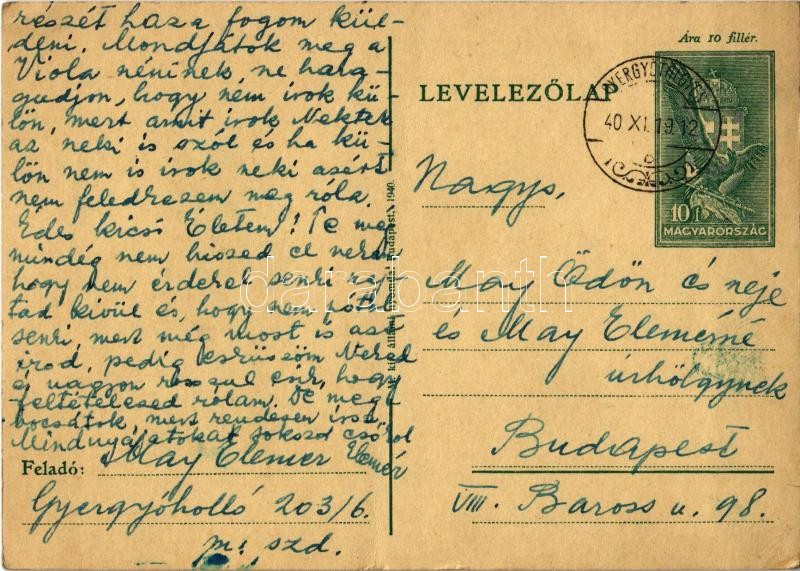 részét haza a fogom kül-
deni. Mondjátok meg a
Viola néninek, ne hara-
gudjon, hogy nem irok kü-
lön, mert amit irok Nektek
az neki is szól és ha kü-
lön nem is irok neki azért
nem feledkezem meg róla.
Édes kicsi Életem! Te még
mindég nem hiszed el nekem
hogy nem érdekel senki raj-
tad kivül és, hogy nem
senki, mert még most is azt
irod, pedig esküszöm Neked
és nagyon rosszul esik, hogy
feltételezed rólam. De meg-
bocsátok, mert rendesen irsz.
Mindnyájatokat sokszor csókol
Elemér
Feladó: May Elemér
Gyergyóholló 203/6.
m. szd.
kir. állami nyomda, Budapest, 1940.
Ára 10 fillér.
LEVELEZŐLAP
40 XI. 19 12
10 f
MAGYARORSZÁG
Nagys,
May Ödön és neje
és May Elemérné
úrhölgynek
Budapest
VIII. Baross u. 98.
darabanth